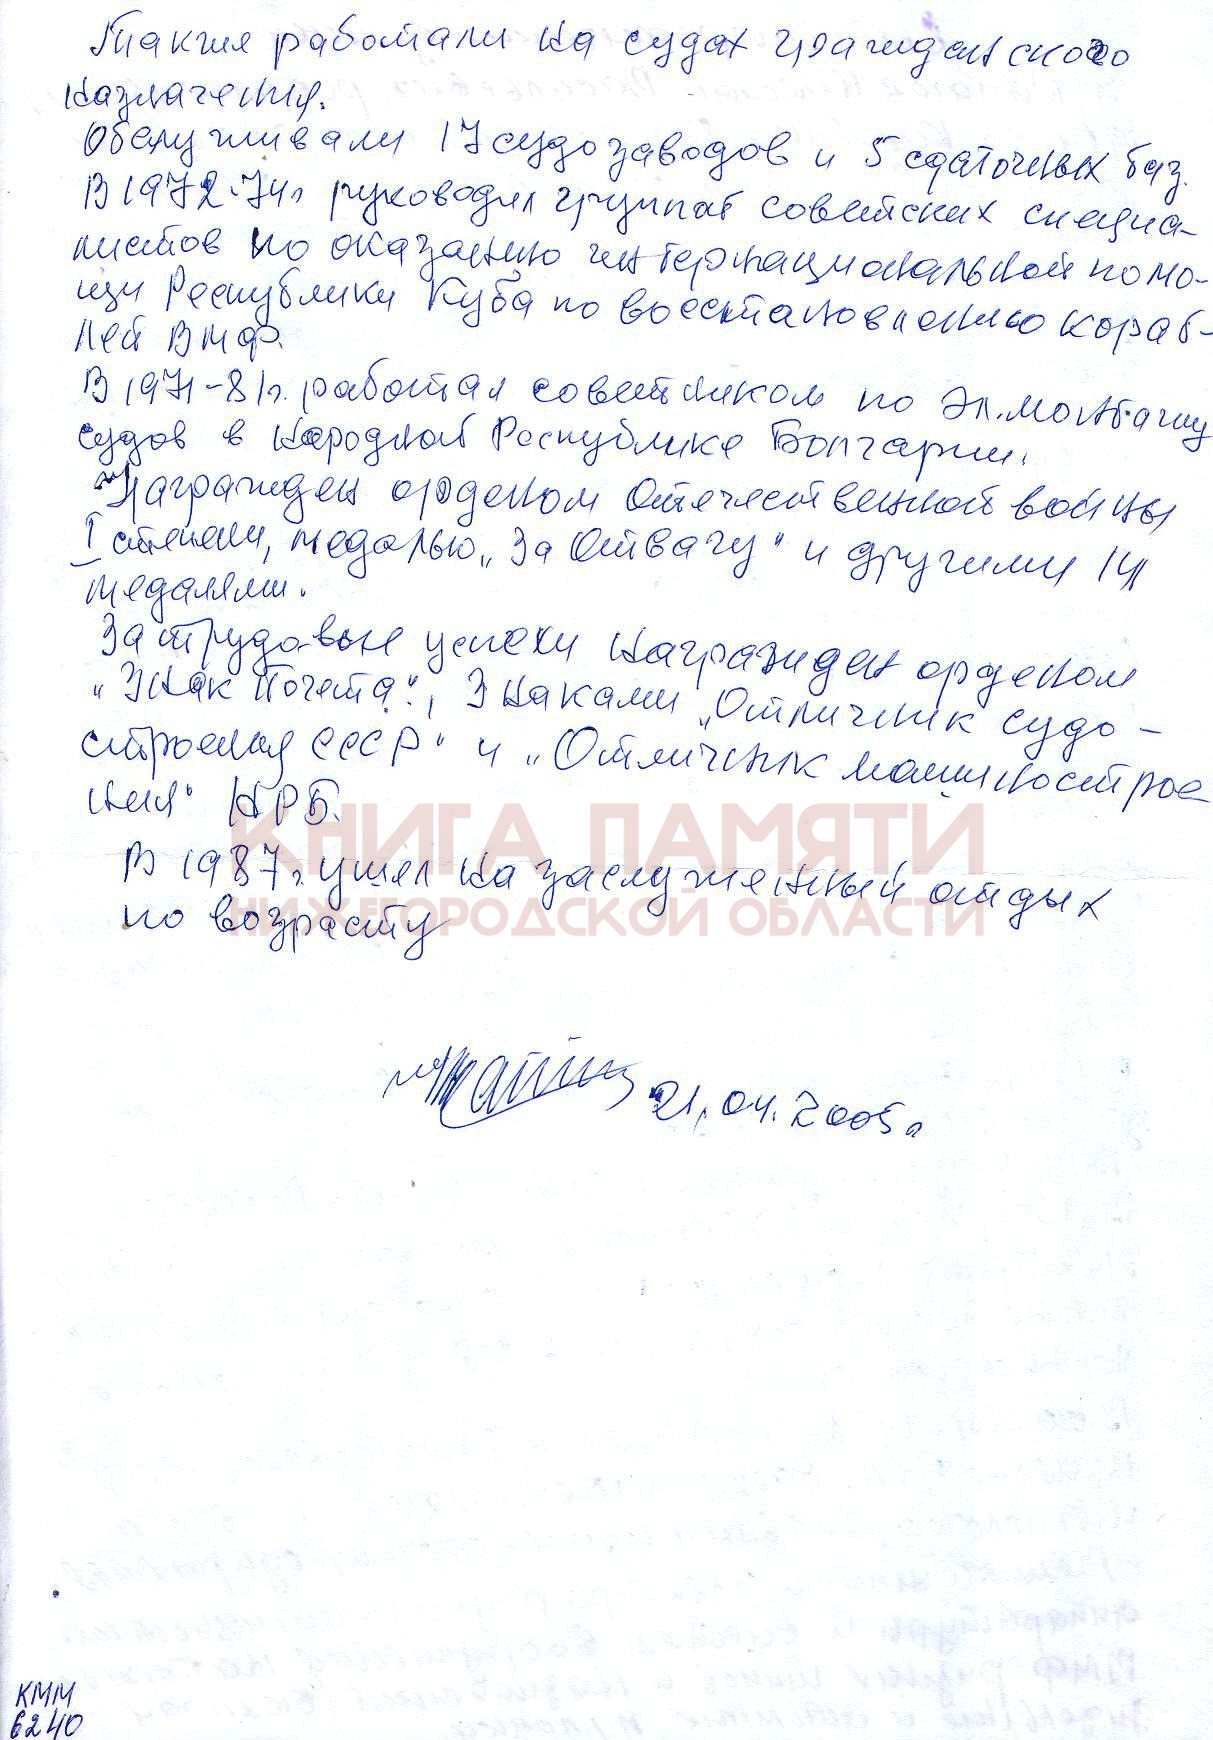 Также работали на судах гражданского
назначения.
Обслуживали 17 судозаводов и 5 сдаточных баз.
В 1972-74г руководил группой советских специа-
листов по оказанию интернациональной помо-
щи Республики Куба по восстановлению кораб-
лей ВМФ.
В 1971-81г. работал советником по эл.монтажу
судов в Народной Республике Болгарии.
Награжден орденом Отечественной войны
I степени, медалью „За Отвагу" и другими 14
медалями.
За трудовые успехи награжден орденом
„Знак Почета", Знаками „Отличник судо-
строения СССР" и „Отличник машинострое
ния" НРБ.
В 1987г. ушел на заслуженный отдых
по возрасту
КНИГА ПАМЯТИ
НИЖЕГОРОДСКОЙ ОБЛАСТИ
21.04.2005г
КММ
6240